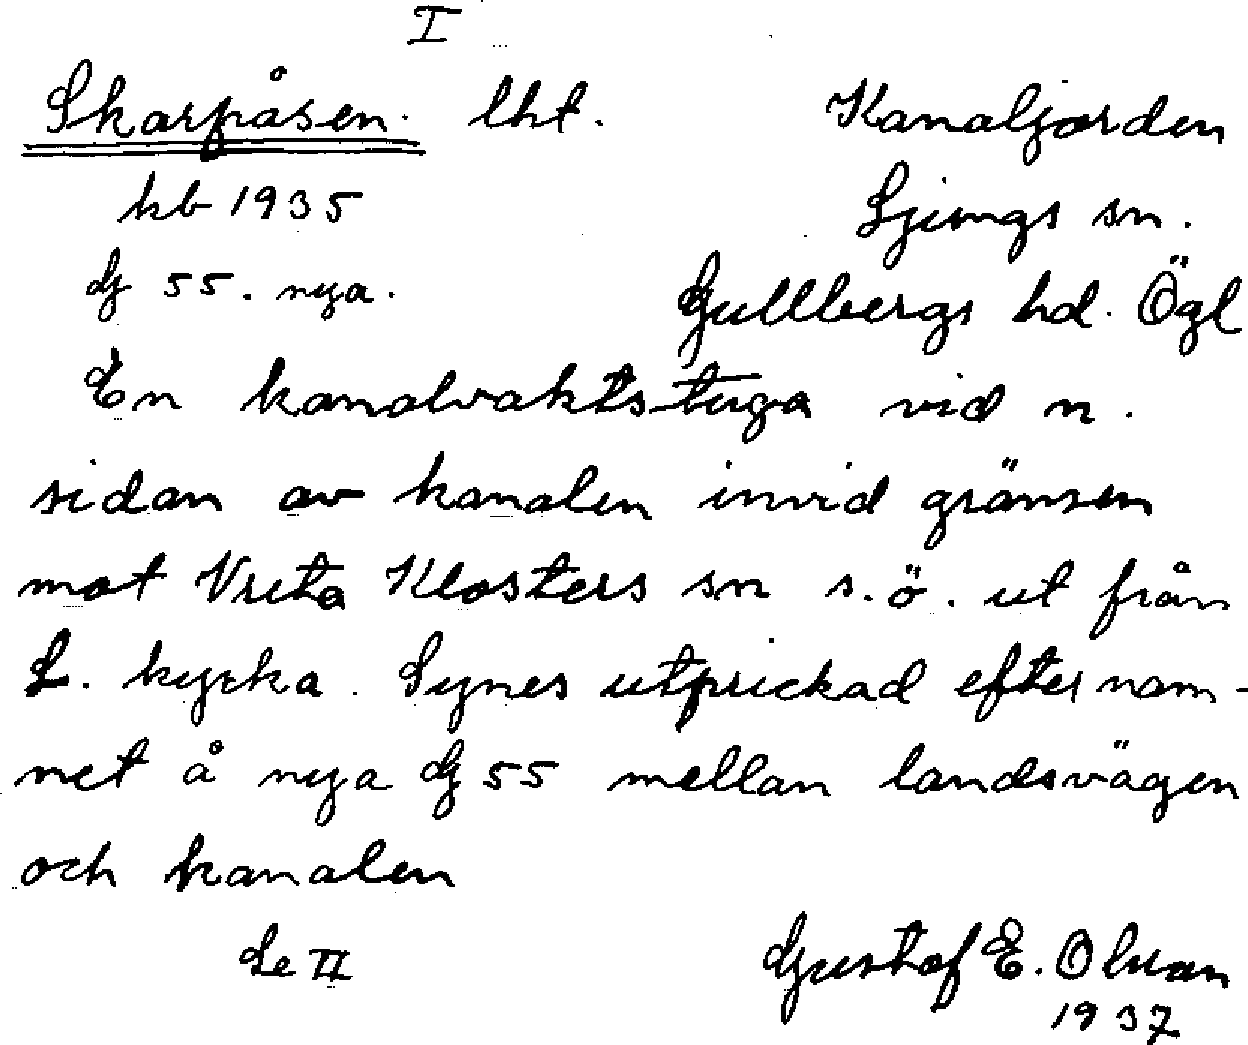 I
Skarpåsen. lht. Kanaljorden
kb 1935 Ljungs sn.
dj 55. nya. Gullbergs hd. Ögl
En kanalvaktstuga vid n.
sidan av kanalen invid gränsen
mot Vreta Klosters sn s.ö. ut från
L. kyrka. Synes utprickad efter nam-
net å nya dj 55 mellan landsvägen
och kanalen
Se II Gustaf E. Olsson
1937